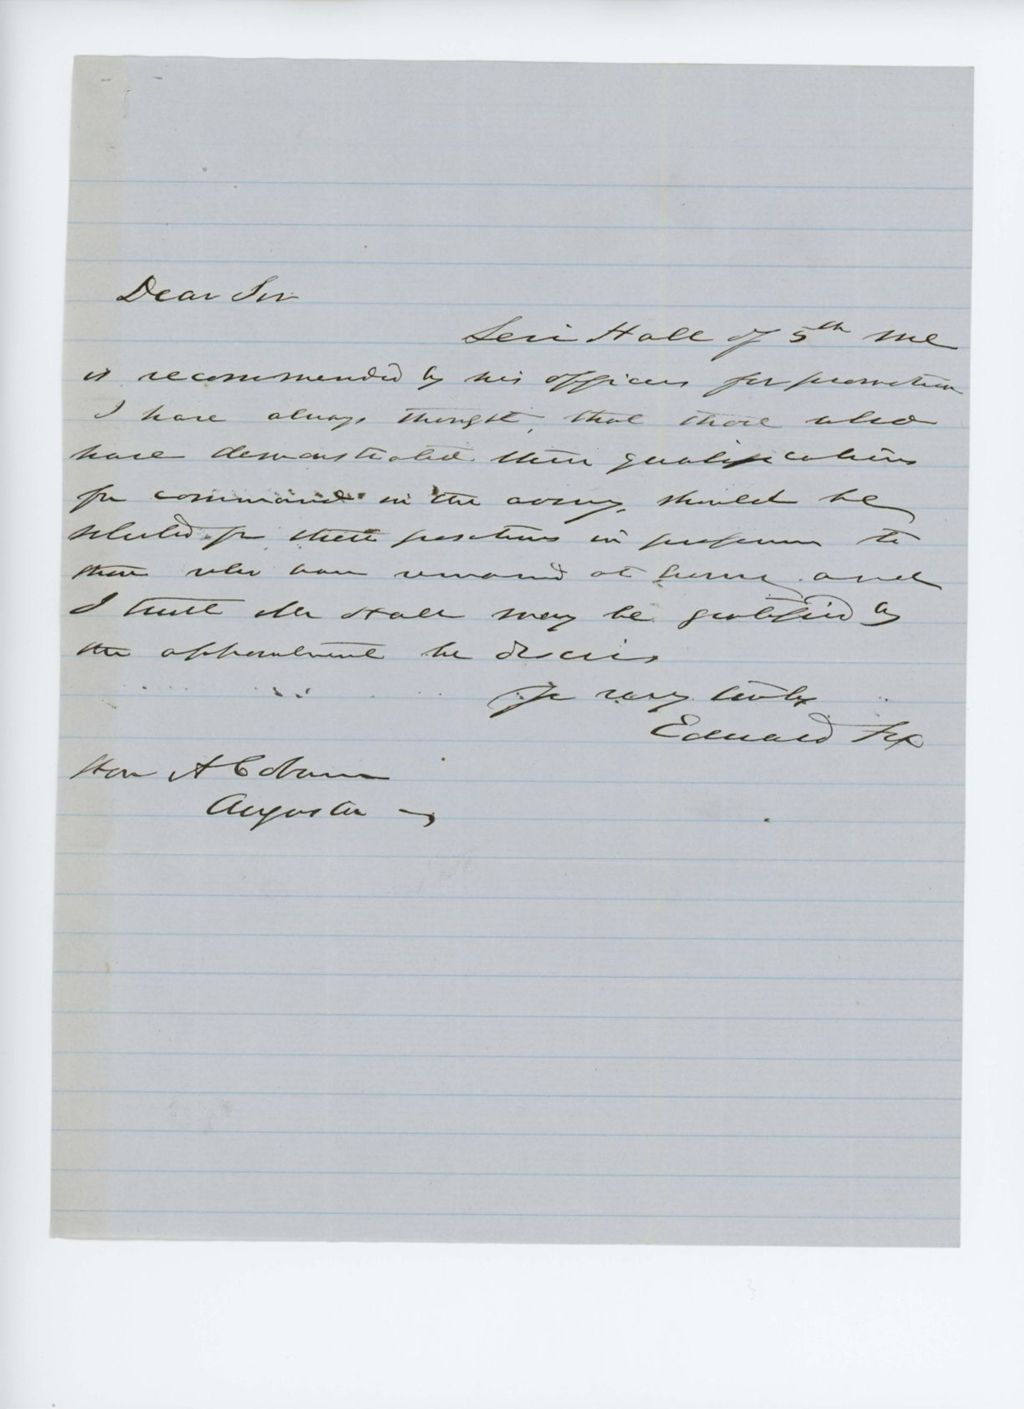 Dear Sir
Levi Hall of 5th Me
is recommended by his officers for promotion
I have always thought, that those who
have demonstrated their qualifications
for command in the army, should be
selected for these positions in preference to
those who have remained at home, and
I trust Mr Hall may be gratified by
the appointment he desires
Yr very truly
Edward Fox
Hon A Coburn
Augusta